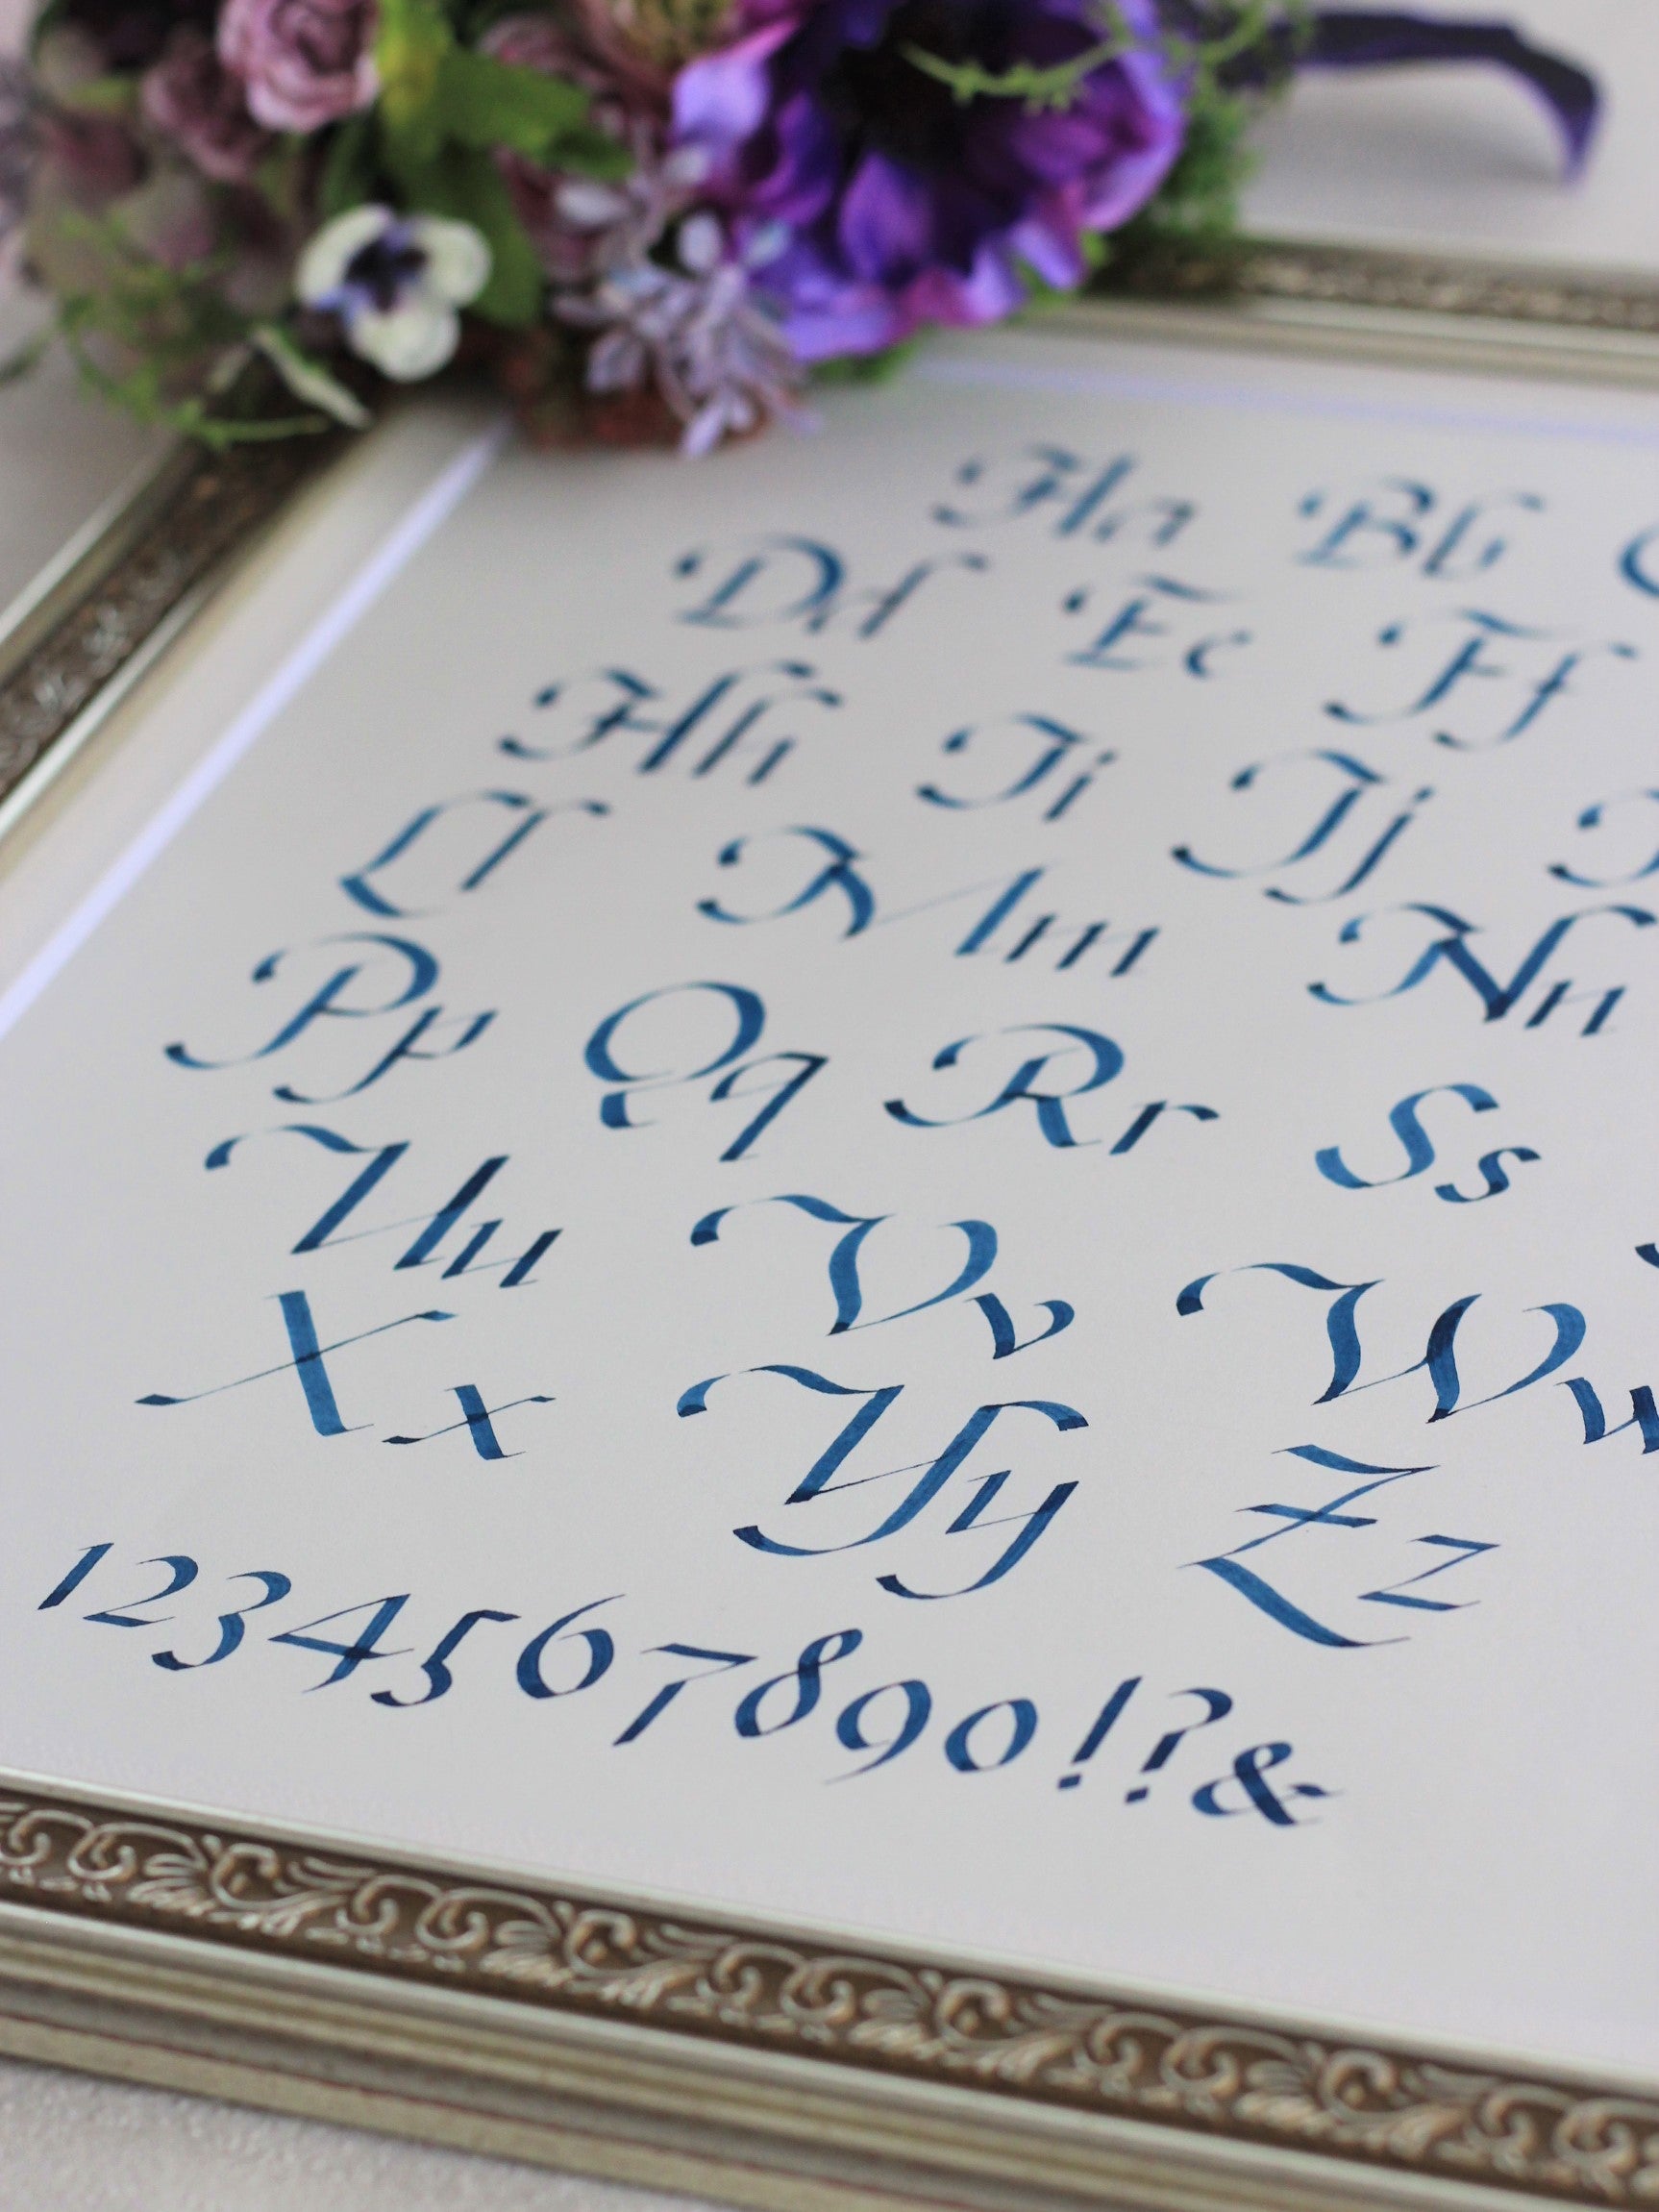 Aa Bb
Dd Ee Ff
Hh Ii Jj
Ll Mm Nn
Pp Qq Rr Ss
Uu Vv Ww
Xx Yy Zz
1234567890!?&